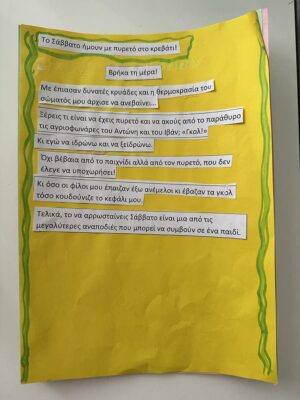 Το Σάββατο ήμουν με πυρετό στο κρεβάτι!
Βρήκα τη μέρα!
Με έπιασαν δυνατές κρυάδες και η θερμοκρασία του
σώματός μου άρχισε να ανεβαίνει...
Ξέρεις τι είναι να έχεις πυρετό και να ακούς από το παράθυρο
τις αγριοφωνάρες του Αντώνη και του Ιβάν; «Γκολ!»
Κι εγώ να ιδρώνω και να ξεϊδρώνω.
Όχι βέβαια από το παιχνίδι αλλά από τον πυρετό, που δεν
έλεγε να υποχωρήσει!
Κι όσο οι φίλοι μου έπαιζαν έξω ανέμελοι κι έβαζαν τα γκολ
τόσο κουδούνιζε το κεφάλι μου.
Τελικά, το να αρρωσταίνεις Σάββατο είναι μια από τις
μεγαλύτερες αναποδιές που μπορεί να συμβούν σε ένα παιδί.